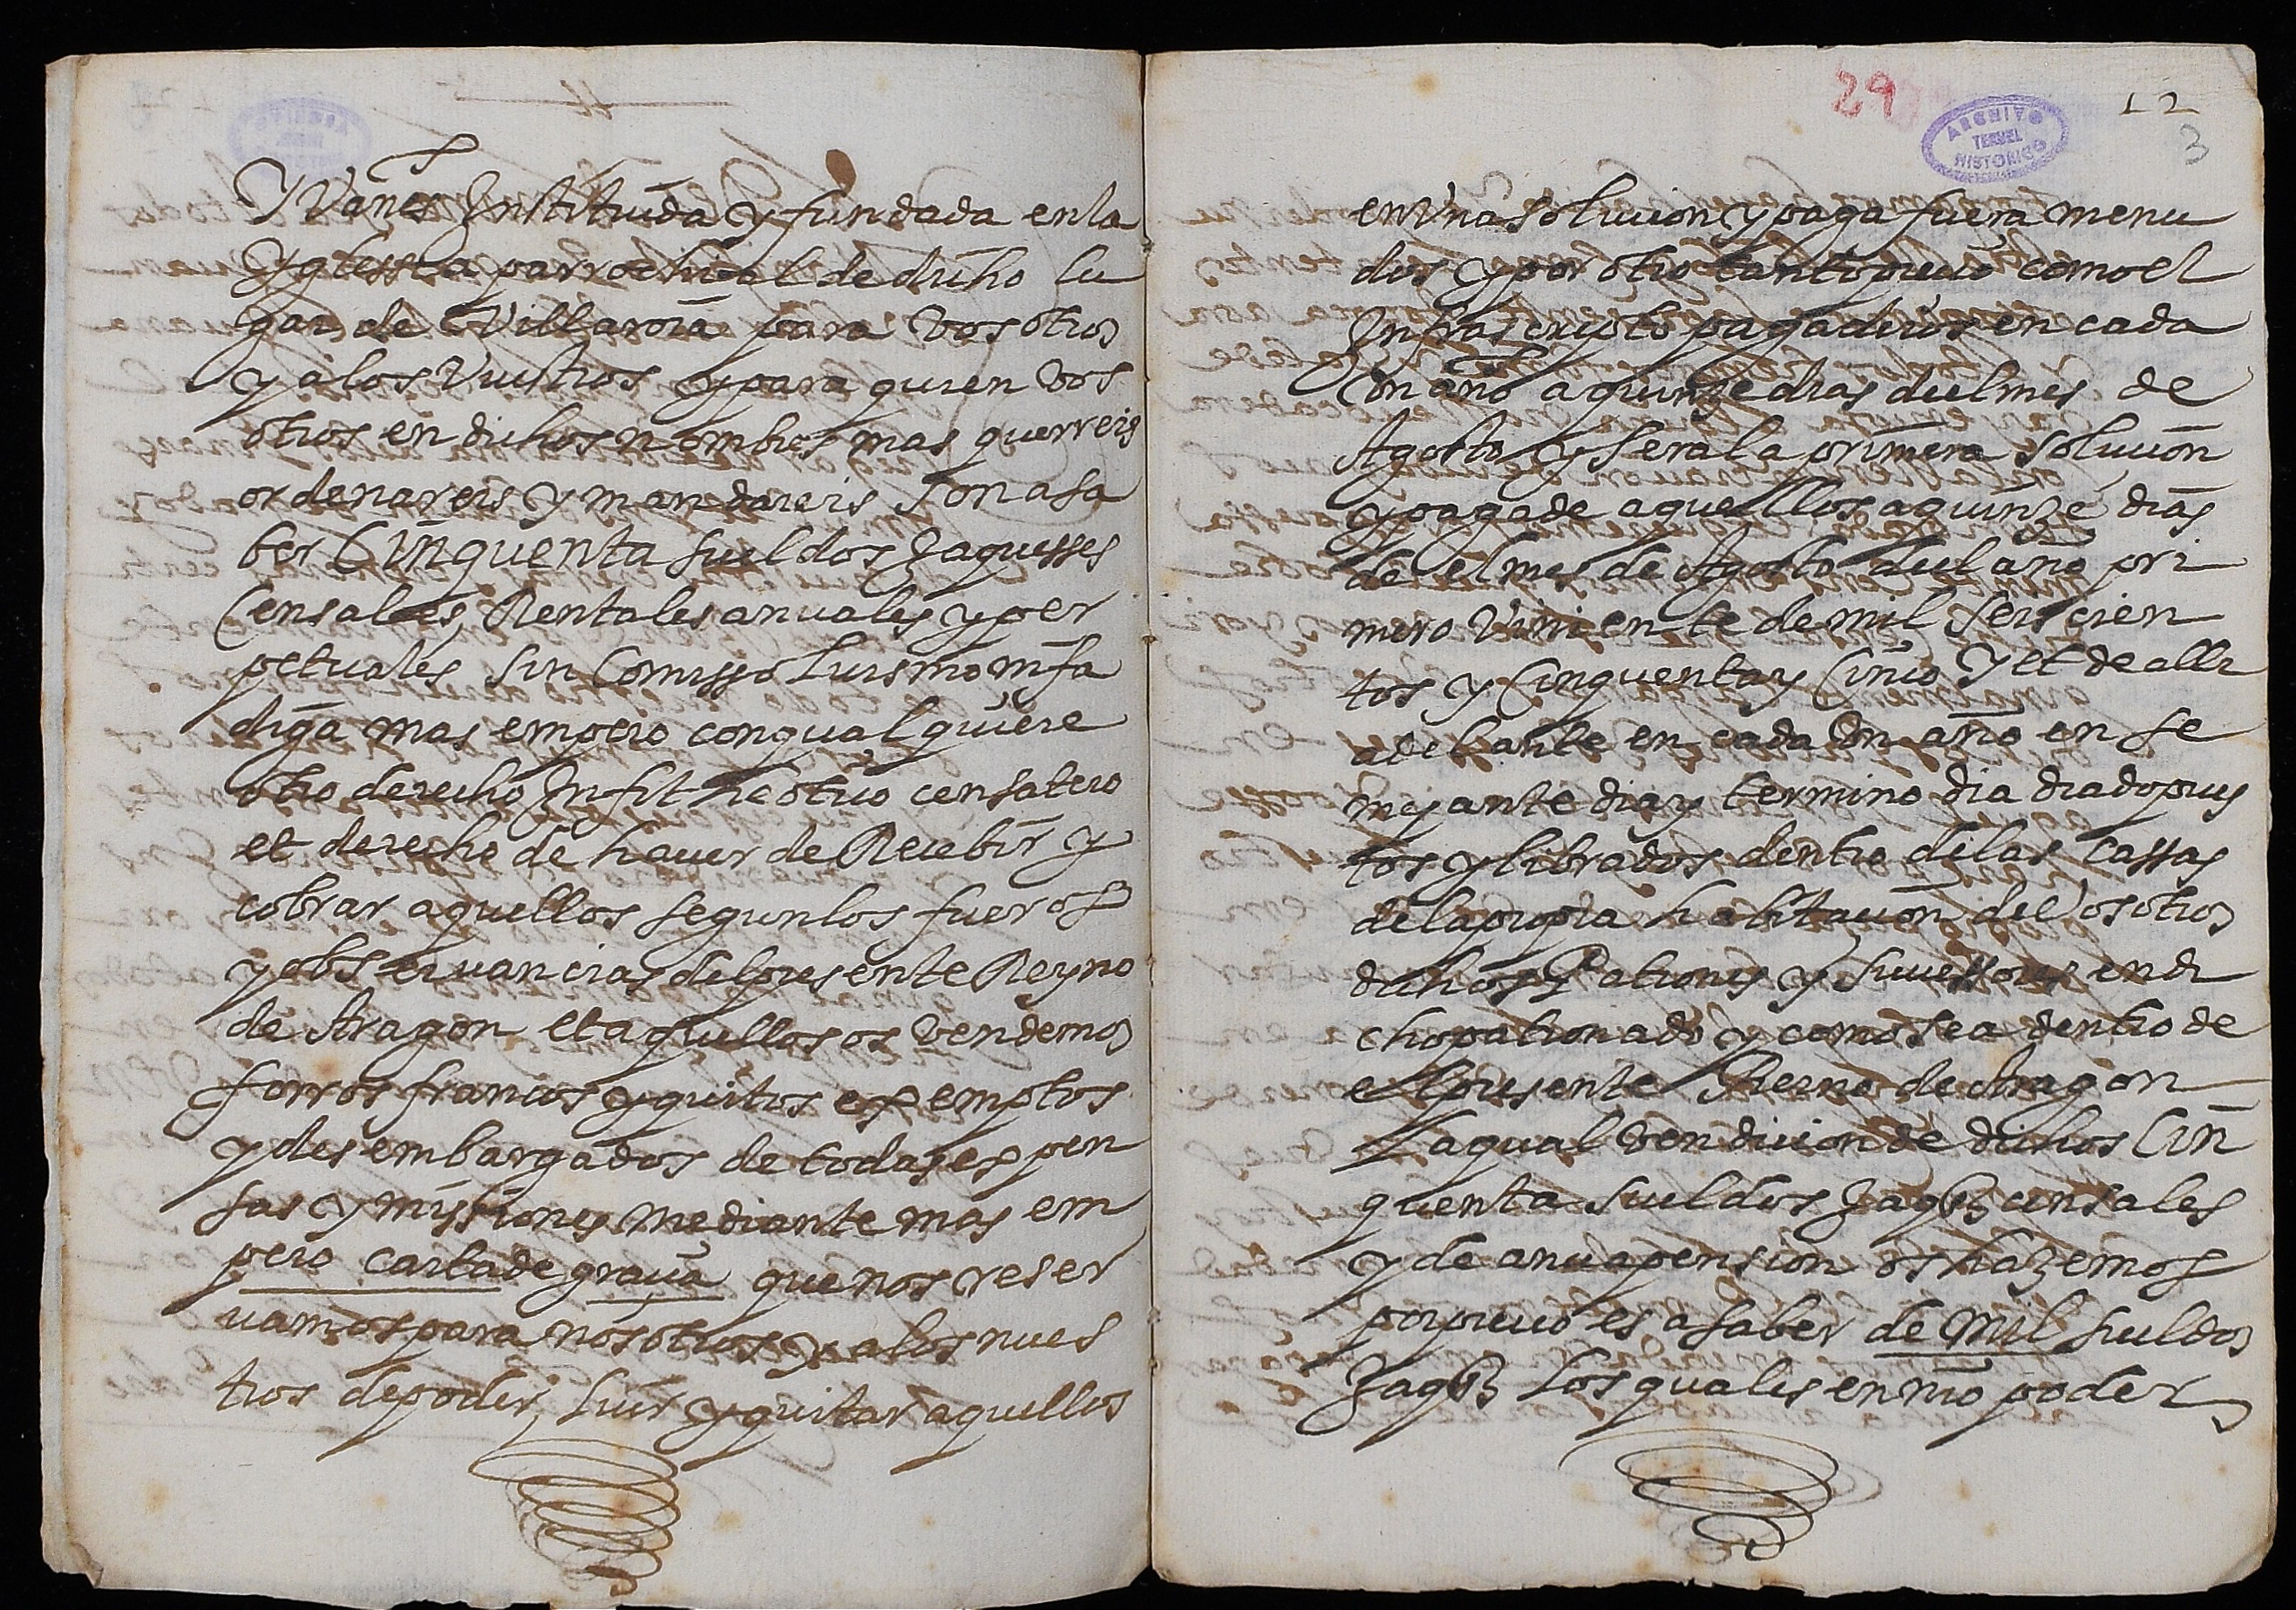 Y Vañes Instituida y fundada en la
Yglessia parrochial de dicho lu
gar de Villaroia para vosotros
y a los Vuestros y para quien vos
otros en dichos nombres mas querreis
ordenareis y mandareis son a sa
ber Cinquenta sueldos Jaquesses
Censales, Rentales anuales y per
petuales sin Comisso Luismo ni fa
diga mas empero con qualquiere
otro derecho Infitheotico censatero
et derecho de haver de Recebir y
cobrar aquellos segun los fueros
y observancias del presente Reyno
de Aragon et aquellos os vendemos
forros francos y quitos exemptos
y desembargados de todas expen
sas y missiones mediante mas em
pero carta de gracia que nos reser
vamos para nosotros y a los nues
tros de poder, luir y quitar aquellos
29
12
3
ARCHIVO
TERUEL
HISTORICO
en Una solucion y paga fuera menu
dos y por otro tanto precio como el
Infrascripto pagaderos en cada
Un año a quinze dias del mes de
Agosto y sera la primera solucion
y paga de aquellos a quinze dias
de el mes de Agosto del año pri
mero Viniente de mil seiscien
tos y Cinquenta y Cinco Y et de alli
adelante en cada Un año en se
mejante dia y termino dia diado pues
tos y librados dentro de las cassas
de la propia habitacion de Vosotros
dichos Patrones y sucessores en di
cho patronado y como sea dentro de
el presente Reino de Aragon
La qual vendicion de dichos Cin
quenta sueldos Jaqs censales
y de anua pension os hazemos
por precio es a saber de Mil sueldos
Jaqs Los quales en nro poder